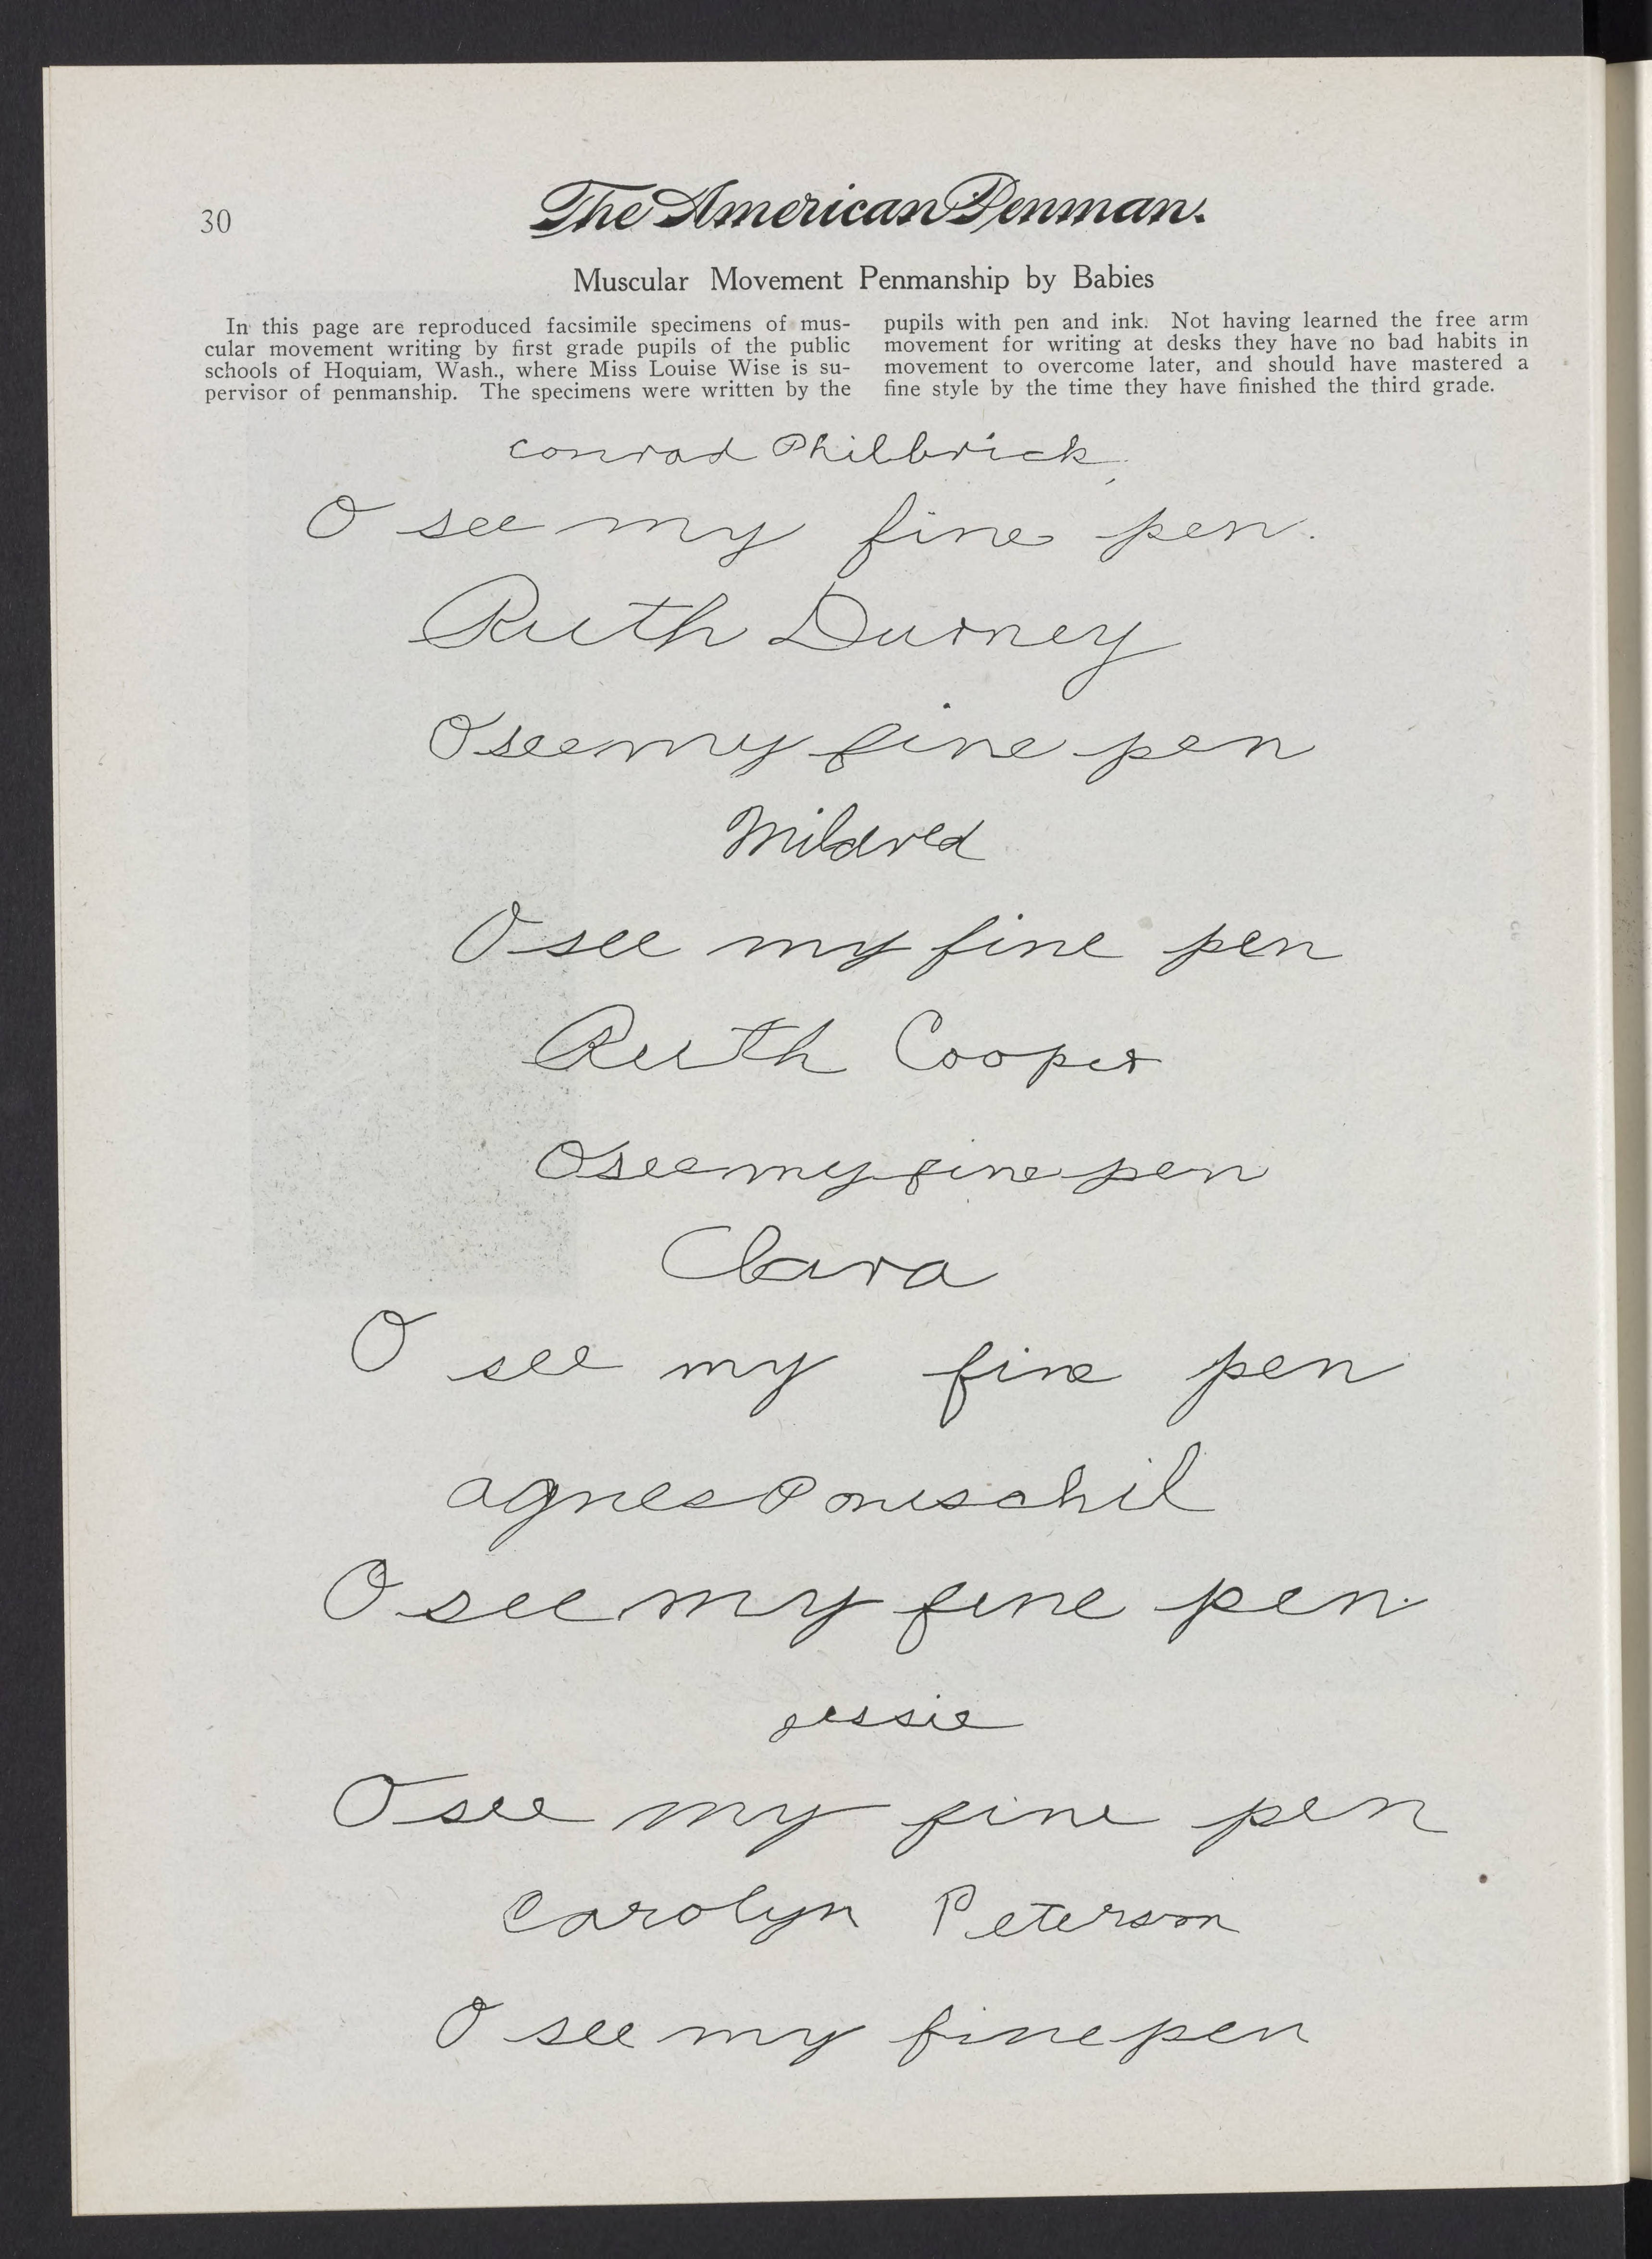 30
The American Penman.
Muscular Movement Penmanship by Babies
In this page are reproduced facsimile specimens of mus-
cular movement writing by first grade pupils of the public
schools of Hoquiam, Wash., where Miss Louise Wise is su-
pervisor of penmanship. The specimens were written by the
pupils with pen and ink. Not having learned the free arm
movement for writing at desks they have no bad habits in
movement to overcome later, and should have mastered a
fine style by the time they have finished the third grade.
conrad Philbrick
O see my fine pen.
Ruth Durney
O see my fine pen
Mildred
O see my fine pen
Ruth Cooper
O see my fine pen
Clara
O see my fine pen
agnes
O see my fine pen.
jessie
O see my fine pen
Carolyn Peterson
O see my fine pen